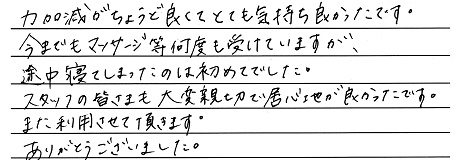 力加減がちょうど良くてとても気持ち良かったです。
今までもマッサージ等何度も受けていますが、
途中寝てしまったのは初めてでした。
スタッフの皆さまも大変親切で居心地が良かったです。
また利用させて頂きます。
ありがとうございました。